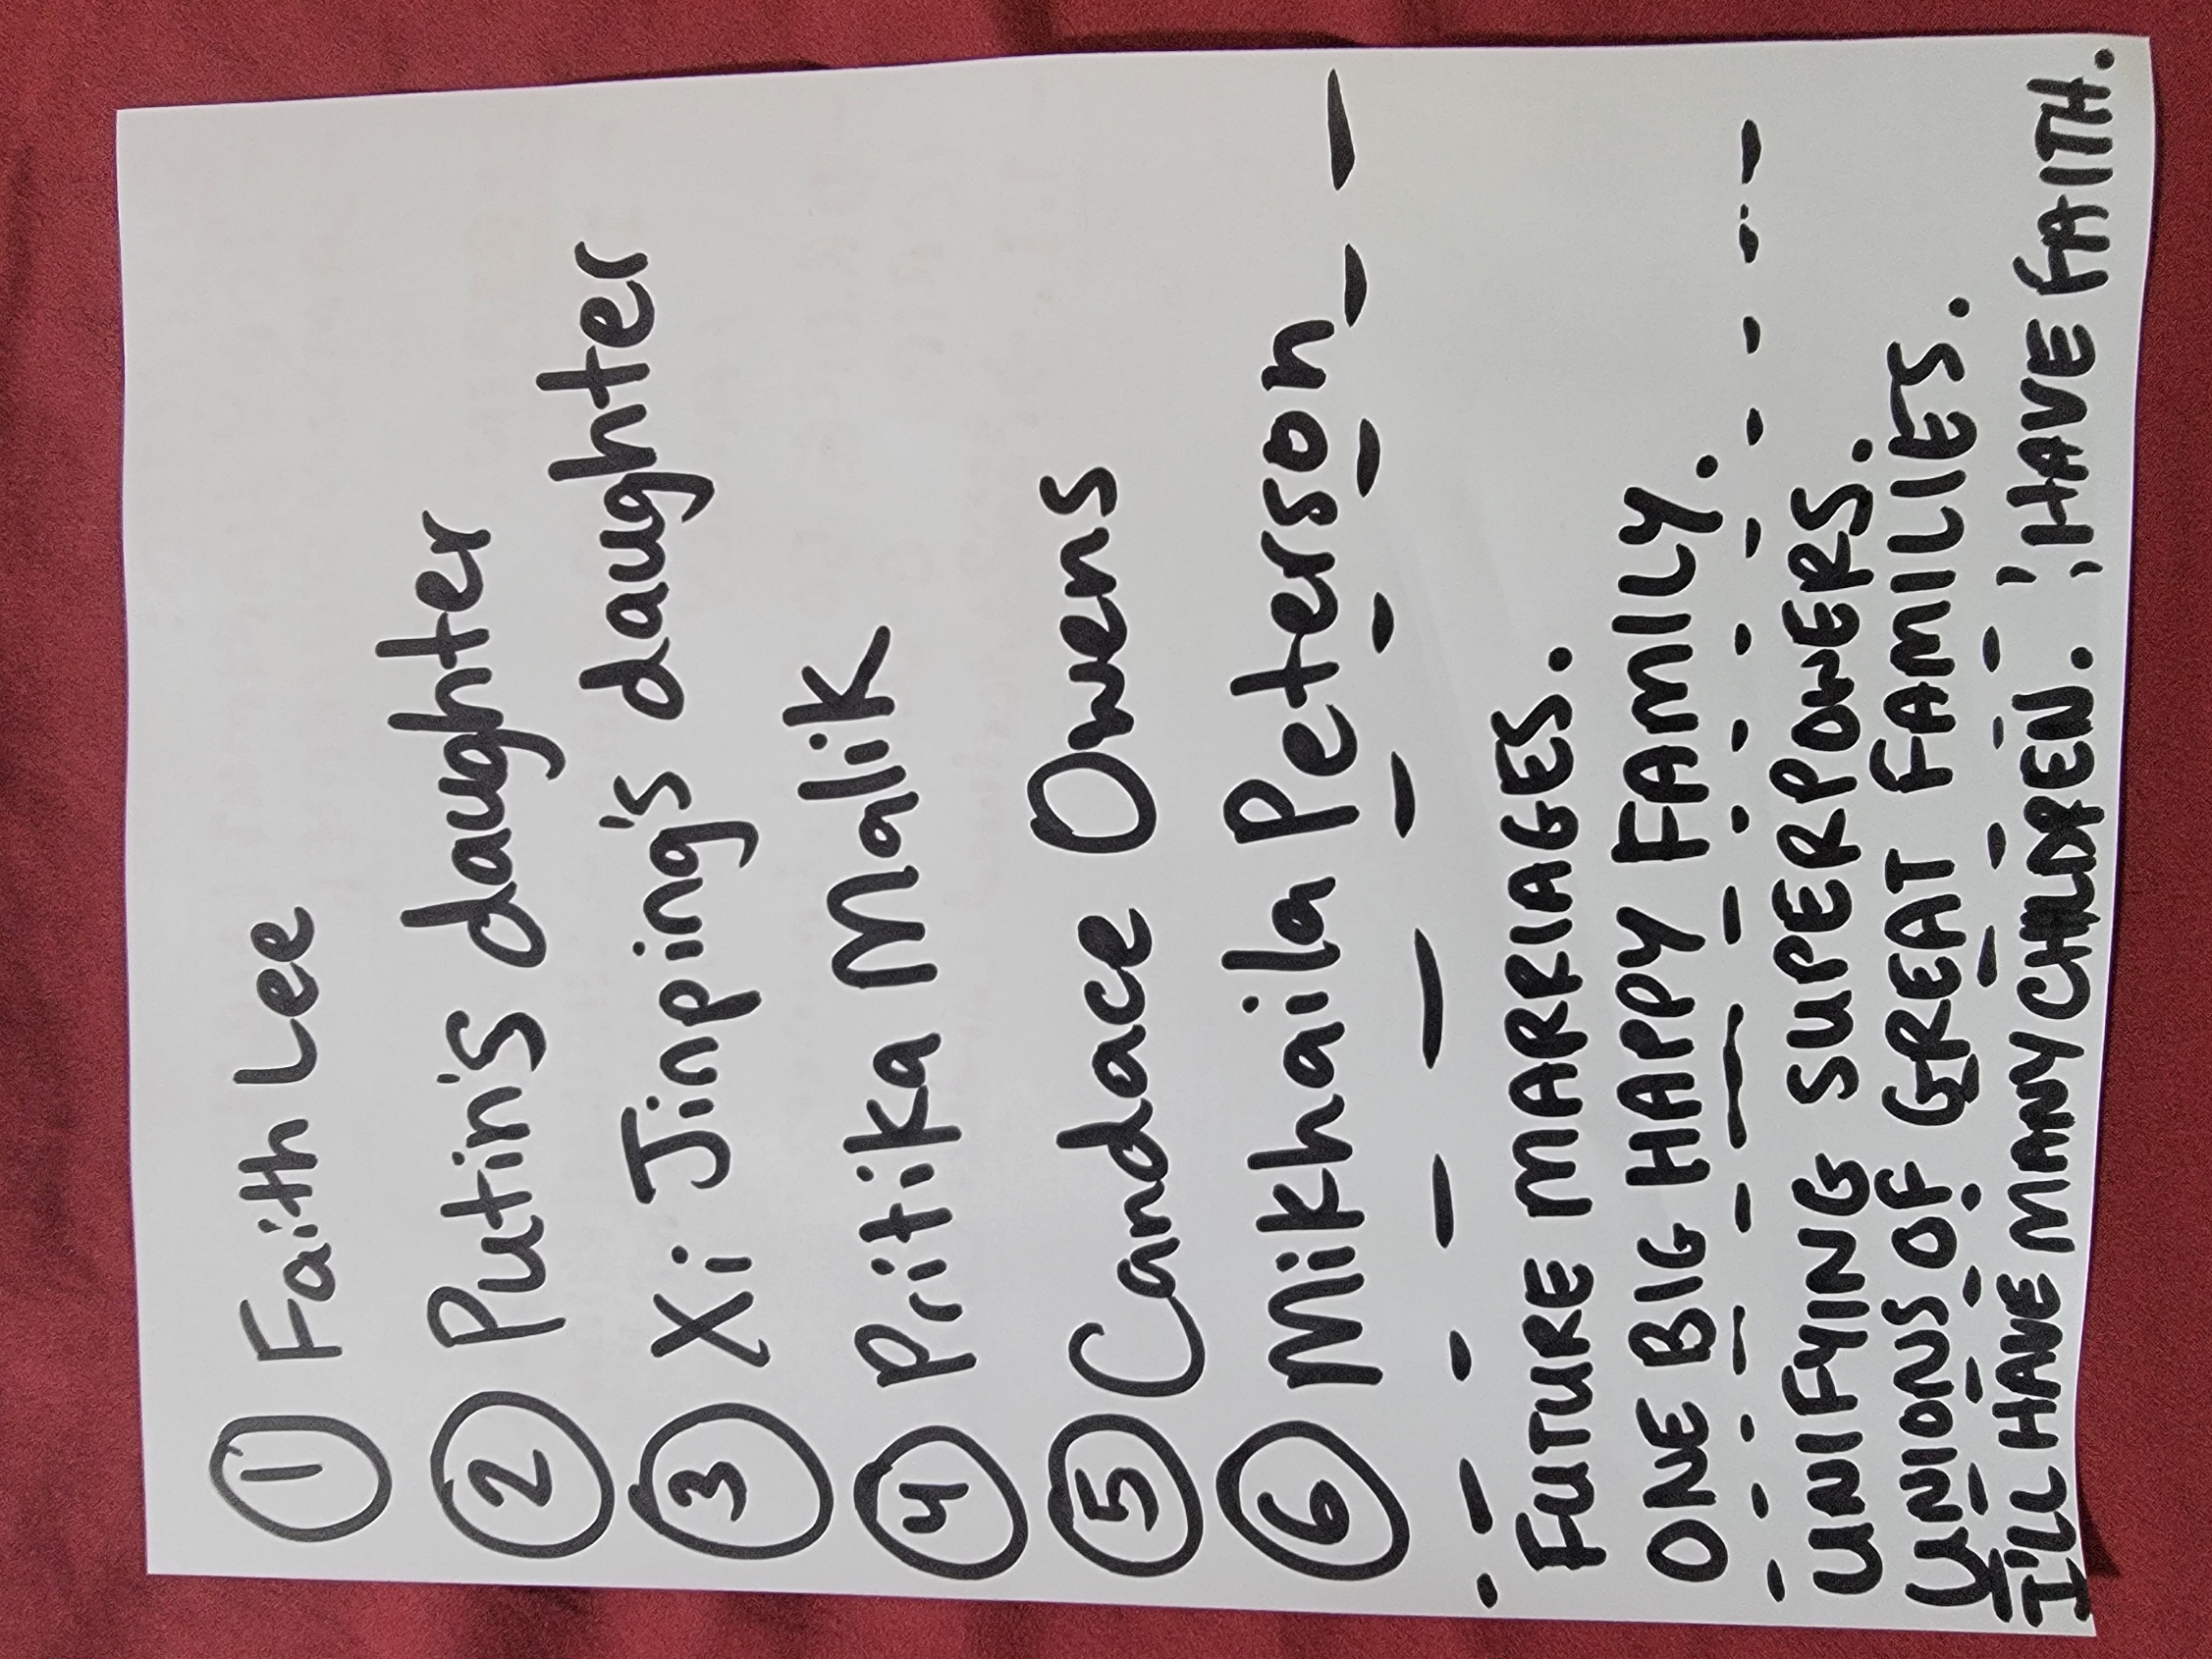 1 Faith Lee
2 Putin's daughter
3 Xi Jinping's daughter
4 Pritika Malik
5 Candace Owens
6 Mikhaila Peterson
FUTURE MARRIAGES.
ONE BIG HAPPY FAMILY.
UNIFYING SUPERPOWERS.
UNIONS OF GREAT FAMILIES.
I'LL HAVE MANY CHILDREN. ; HAVE FAITH.